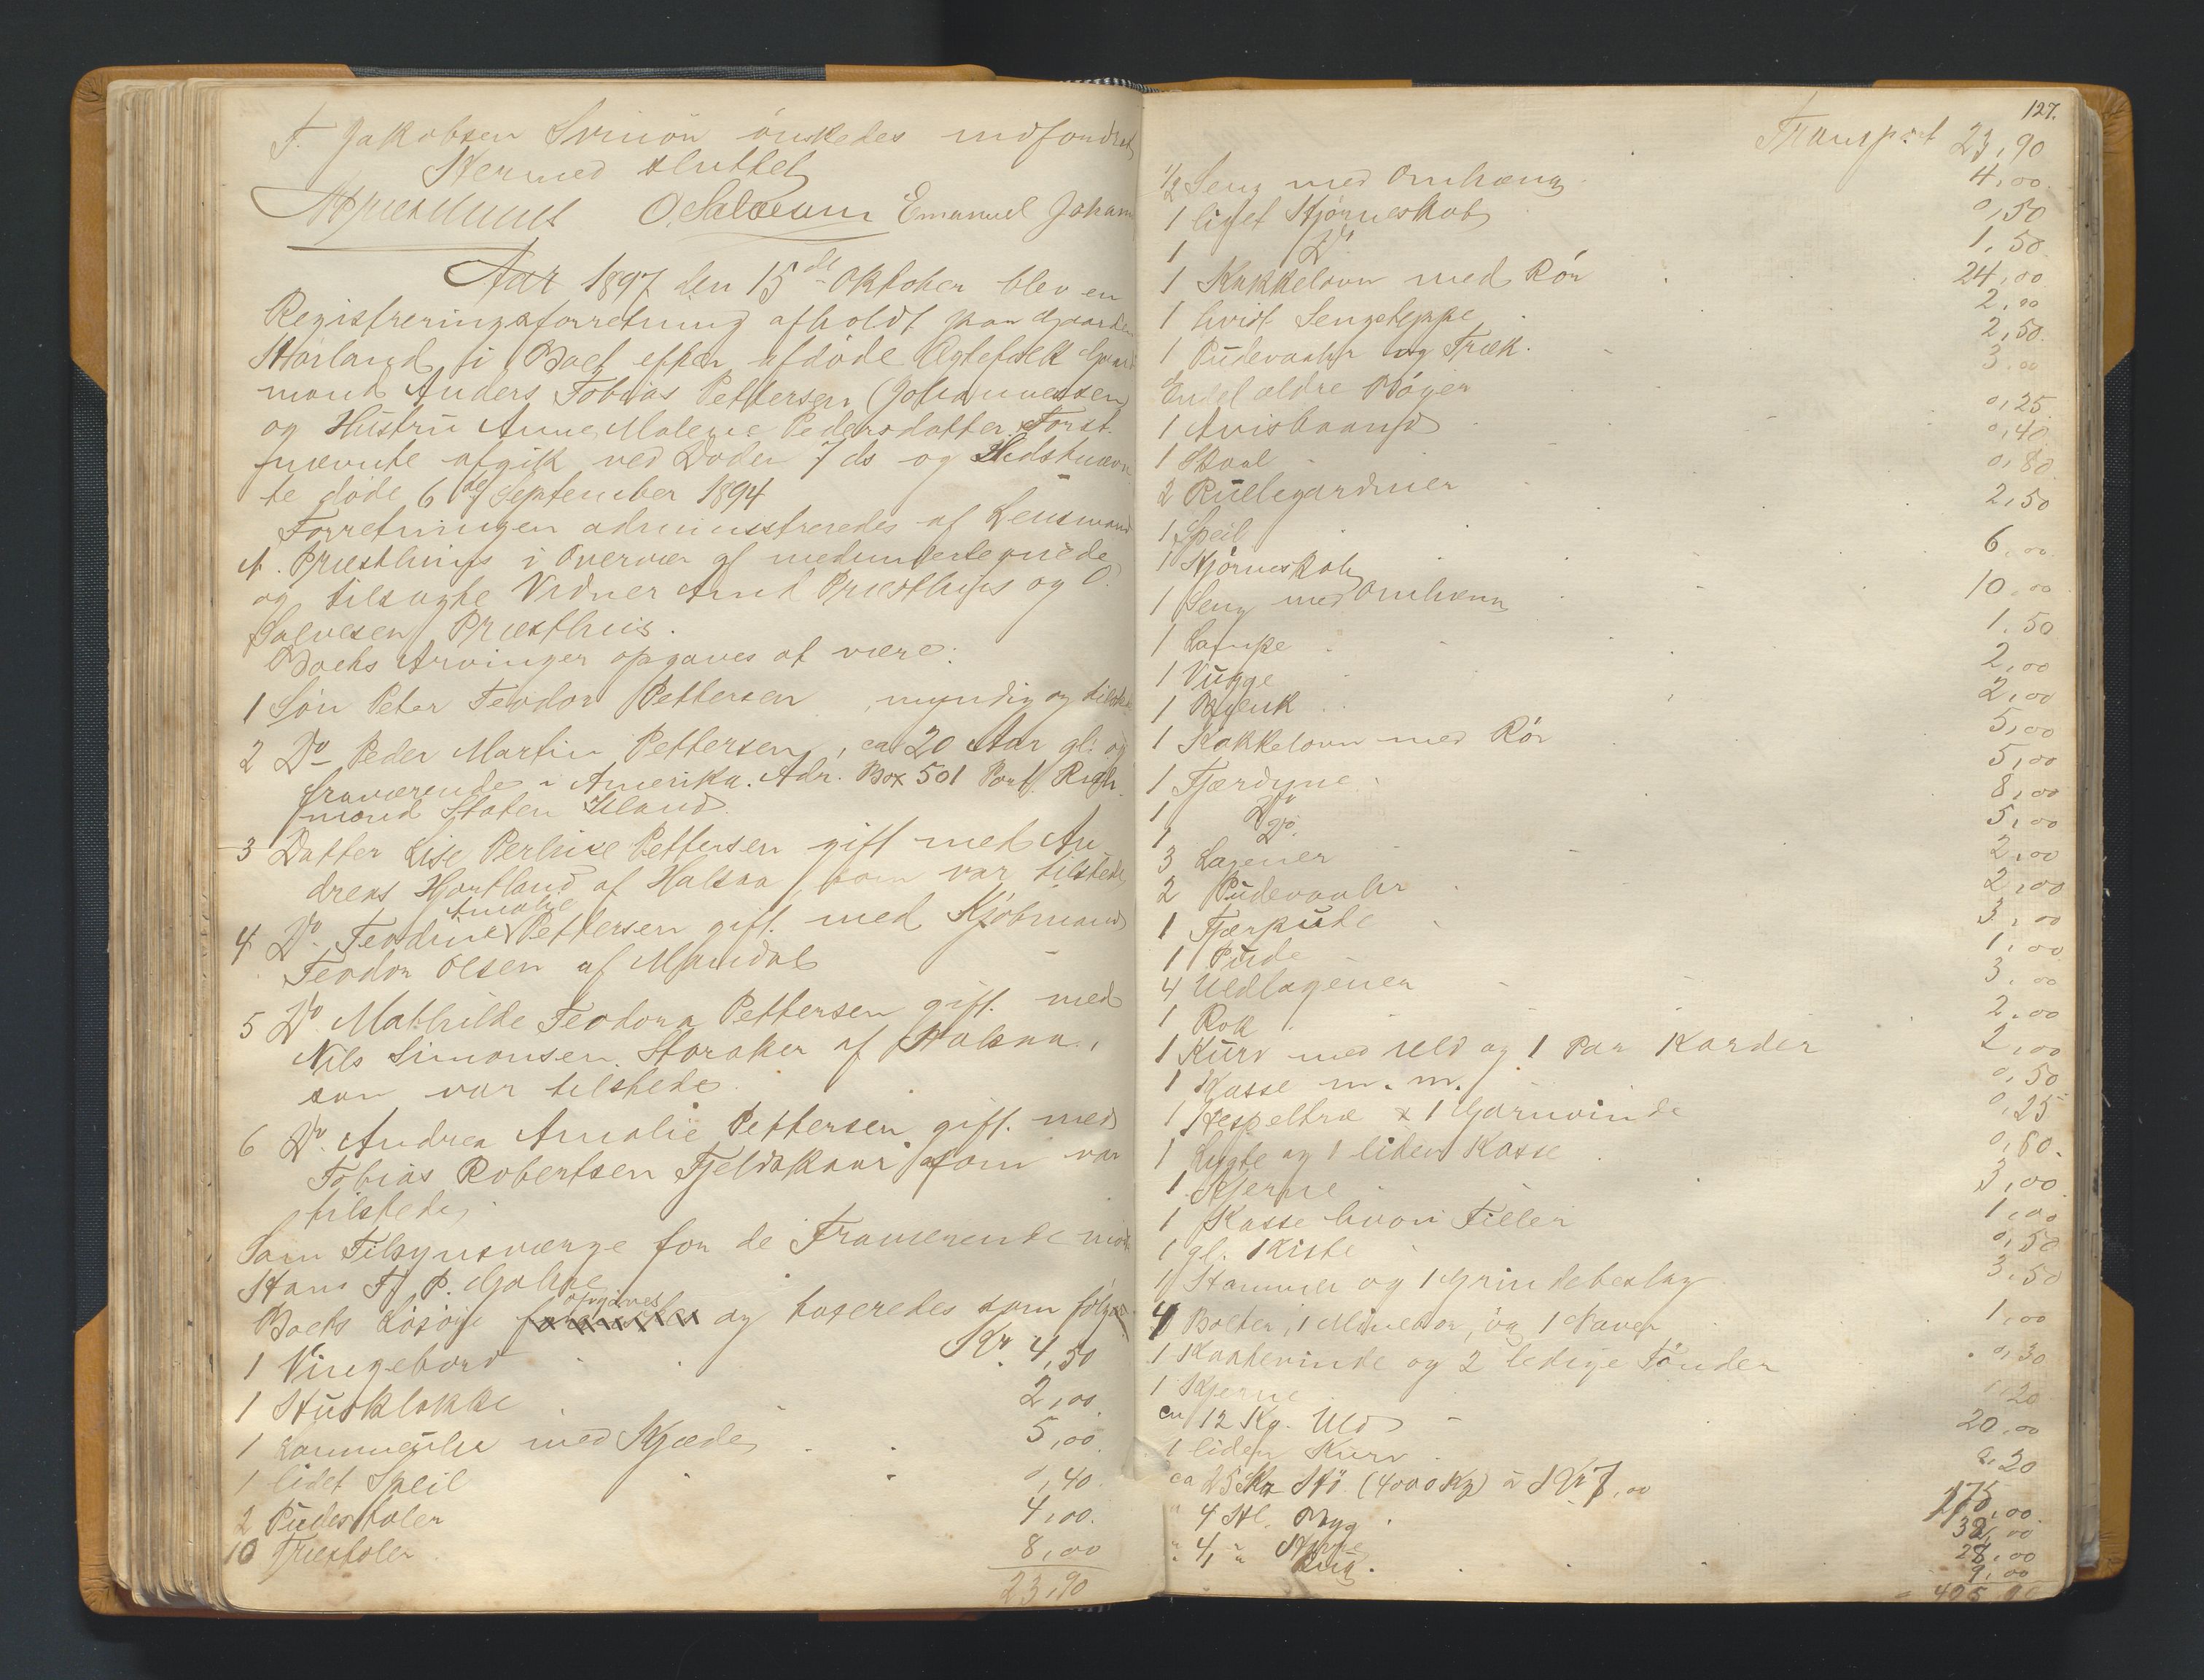 T. Jakobsen Svinör önskedes indfordret
Hermed sluttet
O. Salvesen Emanuel Johann
Aar 1897 den 15de Oktober blev en
Registreringsforretning afholdt paa Gaarden
Hörland i Boet efter afdöde Ægtefolk Gaard
mand Anders Tobias Pettersen (Johannessen)
og Hustru Anne Malene Pedersdatter. Först
nævnte afgik ved Döden 7 ds og Sidstnævn
te döde 6te September 1894
Forretningen administreredes af Lensmand
A. Præsthus i Overvær af medundertegnede
og tilsagte Vidner Arnt Præsthus og O.
Salvesen Præsthus.
Boets Arvinger opgaves at være:
1 Sön Peter Teodor Pettersen, myndig og tilstede
2 Do Peder Martin Pettersen, ca 20 Aar gl. og
fraværende i Amerika. Adr. Box 501 Port Rich
mond Staten Island
3 Datter Lise Perline Pettersen gift med An
dreas Hortland af Halsaa, som var tilstede
4 Do. Teodine Amalie Pettersen gift med Kjöbmand
Teodor Olsen af Mandal
5 Do Mathilde Teodora Pettersen gift med
Nils Simonsen Storaker af Halsaa,
som var tilstede
6 Do. Andrea Amalie Pettersen gift med
Tobias Robertsen Fjeldskaar som var
tilstede
Som Tilsynsværge for de Fraværende möd
Hans Tj P. Gahre
Boets Lösöre opgaves og taxeredes som fölger
1 Vingebord Kr. 4,50
1 Husklokke 2,00
1 Lommeuhr med Kjæde 5,00
1 lidet Speil 0,40
2 Pudestoler 4,00
10 Træstoler 8,00
23,90
127.
Transport 23,90
1/2 Seng med Omhæng 4,00
1 lidet Hjörneskab 0,50
1 Do 1,50
1 Kakkelovn med Rör 24,00
1 hvidt Sengeteppe 2,00
1 Pudevaahr og Træk 2,50
Endel ældre Böger 3,00
1 Avisbaand 0,25
1 Skaal 0,40
2 Rullegardiner 0,80
1 Speil 2,50
1 Hjörneskab 6,00
1 Seng med Omhæng 10,00
1 Lampe 1,50
1 Vugge 2,00
1 Bænk 2,00
1 Kakkelovn med Rör 5,00
1 Fjærdyne 5,00
1 Do 8,00
1 Do. 5,00
3 Lagener 2,00
2 Pudevaahr 2,00
1 Fjærpude 3,00
1 Pude 1,00
4 Uldlagener 3,00
1 Rok 2,00
1 Kurv med Uld og 1 Par Karder 2,00
1 Kasse m. m. 0,50
1 Hespeltræ & 1 Garnvinde 0,25
1 Lygte og 1 liden Kasse 0,80
1 Kjerne 3,00
1 Kasse hvori Filler 1,00
1 gl. Kiste 0,50
1 Hammer og 1 Grindebeslag 3,50
4 Bolter, 1 Minebor, og 1 Naver 1,00
1 Kaatevinde og 2 ledige Tönder 0,30
1 Kjerne 1,20
ca 12 Kg. Uld 20,00
1 liden Kurv 0,20
ca 25 Skp Hö (4000 Kg) à Kr 7,00 175,00
" 4 Hl. Byg 32,00
" 4 " Havre 28,00
" 1 " Rug 9,00